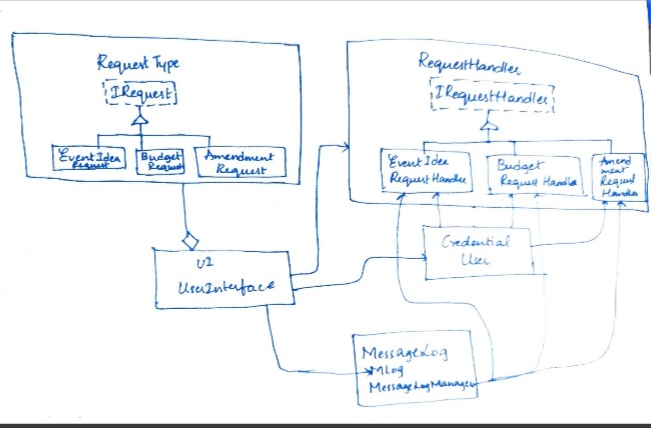 Request Type
IRequest
EventIdea
Request
Budget
Request
Amendment
Request
RequestHandler
IRequestHandler
EventIdea
Request Handler
Budget
Request Handler
Amend
ment
Request
Handler
UI
UserInterface
Credential
User
MessageLog
MLog
MessageLogManager